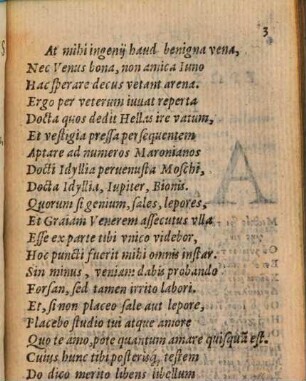 3
At mihi ingenij haud benigna vena,
Nec Venus bona, non amica Iuno
Hac sperare decus vetant arena.
Ergo per veterum iuuat reperta
Docta quos dedit Hellas ire vatum,
Et vestigia pressa persequentem
Aptare ad numeros Maronianos
Docti Idyllia peruenusta Moschi,
Docta Idyllia, Iupiter, Bionis.
Quorum si genium, sales, lepores,
Et Graiam Venerem assecutus vlla
Esse ex parte tibi vnico videbor,
Hoc puncti fuerit mihi omnis instar.
Sin minus, veniam dabis probando
Forsan, sed tamen irrito labori.
Et, si non placeo sale aut lepore,
Placebo studio tui atque amore
Quo te amo, pote quantum amare quisquã est.
Cuius hunc tibi posterisq́; testem
Do dico merito libens libellum